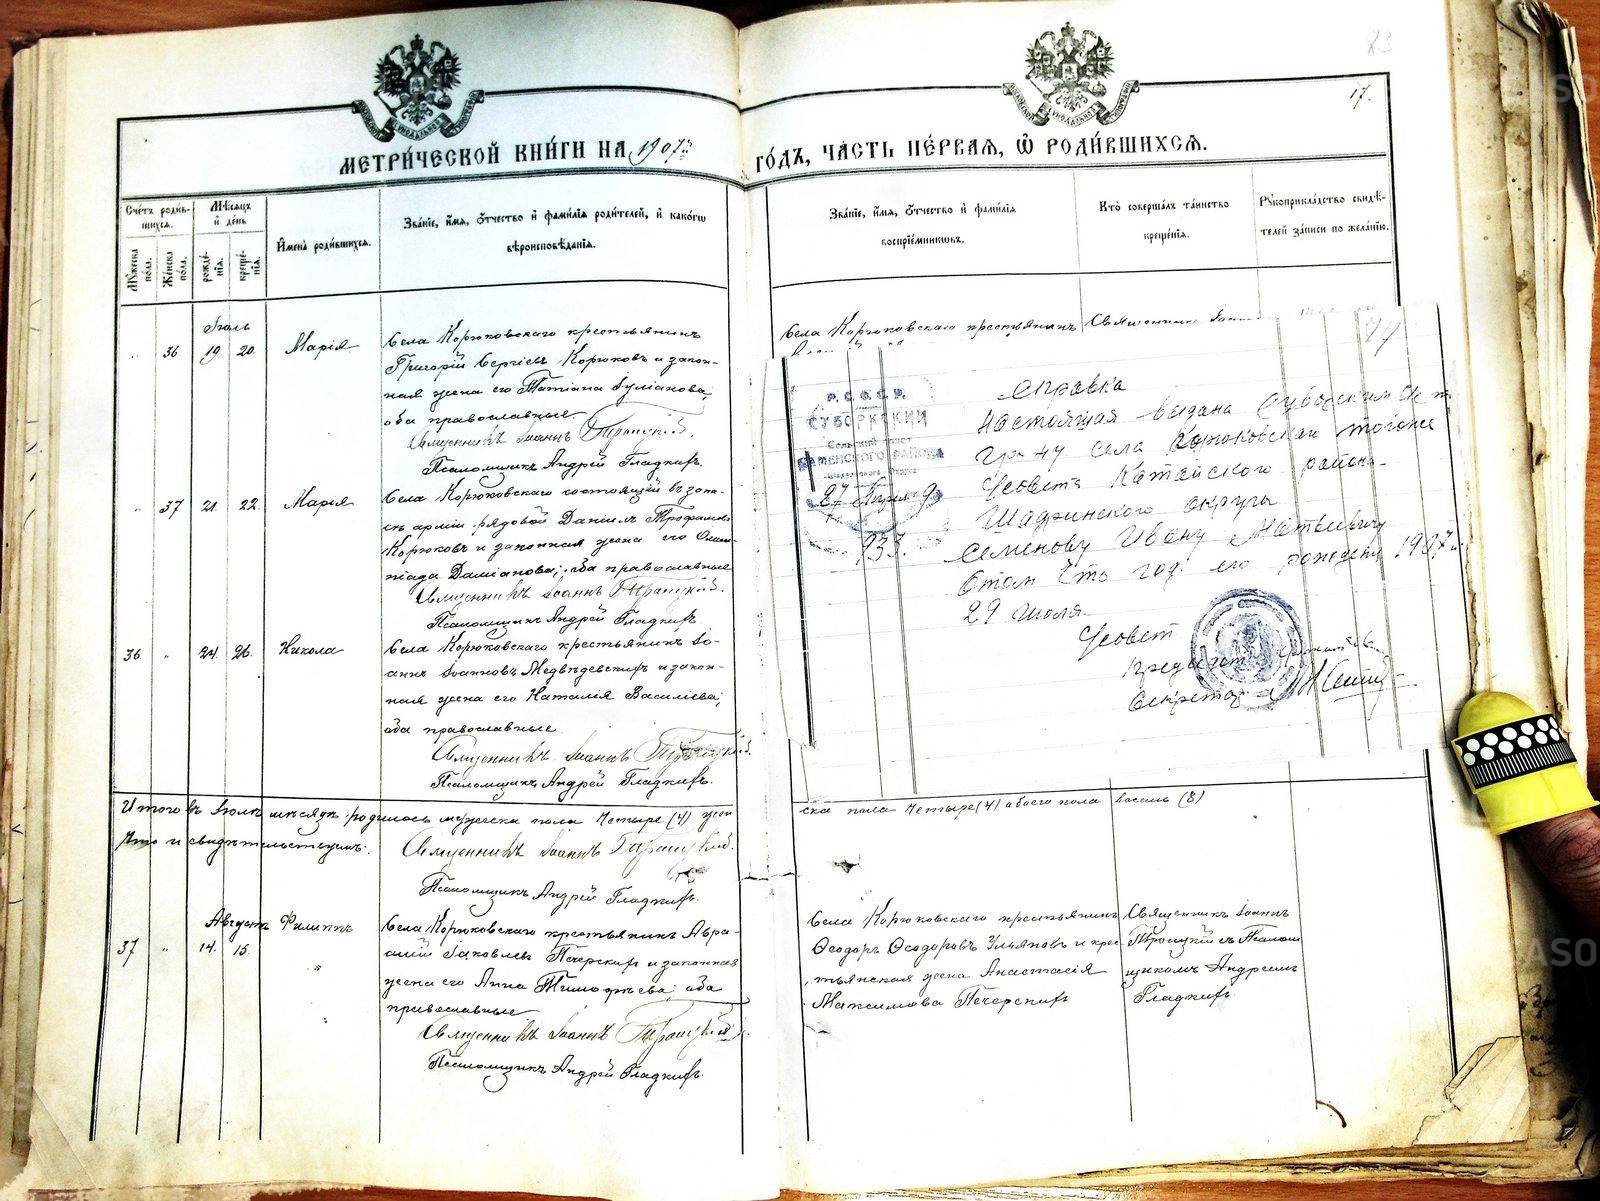 83
17.
МЕТРИ́ЧЕСКОЙ КНИ́ГИ НА 1907й
ГО́ДЪ, ЧА́СТЬ ПЕ́РВАЯ, Ѡ РОДИ́ВШИХСЯ.
Сче́тъ роди́вшихся.
Мꙋ́жеска по́ла.
Же́нска по́ла.
Мѣ́сяцъ и҆ де́нь
рожде́нїѧ.
креще́нїѧ.
И҆мена̀ роди́вшихся.
Зва́нїе, и҆́мѧ, ѻ҆́тчество и҆ фами́лїѧ роди́телей, и҆ како́гѡ
вѣроисповѣ́данїѧ.
Зва́нїе, и҆́мѧ, ѻ҆́тчество и҆ фами́лїѧ
воспрїе́мникѡвъ.
Кто̀ соверша́лъ та́инство
креще́нїѧ.
Рꙋкоприкла́дство свидѣ́-
телей за́писи по жела́нїю.
Іюль
" 36 19 20. Марія
Села Корюковскаго крестьянинъ
Григорій Сергіевъ Корюковъ и закон-
ная жена его Татіана Іуліанова;
оба православные.
Священникъ Іоаннъ Троицкій.
Псаломщикъ Андрей Гладкихъ.
" 37 21. 22. Марія
Села Корюковскаго состоящій въ запа-
сѣ арміи рядовой Даніилъ Трофимовъ
Корюковъ и законная жена его Олим-
піада Даміанова; оба православные
Священникъ Іоаннъ Троицкій.
Псаломщикъ Андрей Гладкихъ
36 " 24. 26. Никола
Села Корюковскаго крестьянинъ Іо-
аннъ Іоанновъ Медвѣдевскихъ и закон-
ная жена его Наталія Василіева;
оба православные
Священникъ Іоаннъ Троицкій.
Псаломщикъ Андрей Гладкихъ.
Итого въ Іюлѣ мѣсяцѣ родилось мужеска пола Четыре (4) жен
ска пола Четыре (4) обоего пола восемь (8)
Что и свидѣтельствуемъ:
Священникъ Іоаннъ Троицкій.
Псаломщикъ Андрей Гладкихъ.
Августъ
37 " 14. 15. Филиппъ
Села Корюковскаго крестьянинъ Авра-
амій Іаковлевъ Печерскихъ и законная
жена его Анна Тимоѳѣева; оба
православные
Священникъ Іоаннъ Троицкій.
Псаломщикъ Андрей Гладкихъ.
Села Корюковскаго крестьянинъ
Священникъ Іоаннъ
Села Корюковскаго крестьянинъ
Ѳеодоръ Ѳеодоровъ Ульяновъ и крес-
тьянская жена Анастасія
Максимова Печерскихъ
Священникъ Іоаннъ
Троицкій съ Псалом
щикомъ Андреемъ
Гладкихъ
Р.С.Ф.С.Р.
СУБОРСКИЙ
Сельский Совет
КАМЕНСКОГО РАЙОНА
27
933.
Справка
Настоящая выдана Суборским
гр-ну села Корюковскаго тогоже
Усовета Катайского района
Шадринского округа
Семенову Ивану Матвеевичу
Отом что год его рождения 1907 г.
29 июля.
Усовет
Председат
Секретарь